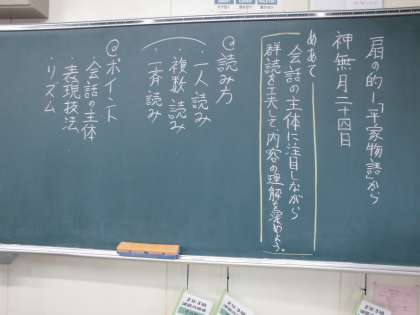 扇の的―「平家物語」から
神無月二十四日
めあて
会話の主体に注目しながら
群読を工夫して、内容の理解を深めよう。
◎読み方
・一人読み
・複数読み
・一斉読み
◎ポイント
会話の主体
・表現技法
・リズム